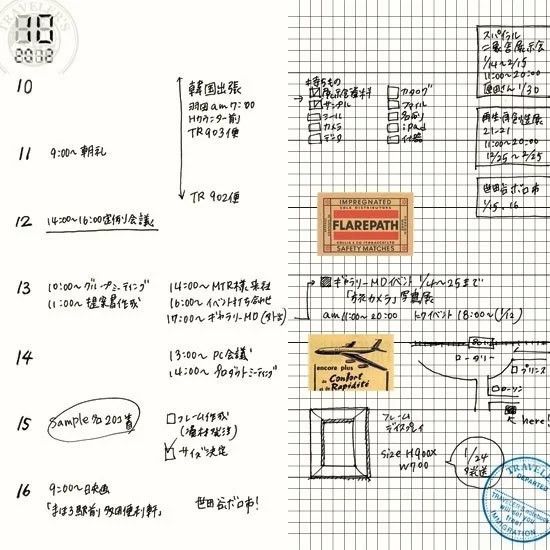 TRAVELER'S
10
2012
10
韓国出張
羽田 am 7:00
Hカウンター前
TR 903便
TR 902便
11
9:00〜朝礼
12
14:00〜16:00定例会議
13
10:00〜グループミーティング
11:00〜提案書作成
14:00〜MTR様来社
16:00〜イベント打ち合せ
17:00〜ギャラリーMD
14
13:00〜PC会議
14:00〜プロダクトミーティング
15
Sample
フレーム作成
サイズ決定
16
9:00〜映画
「まほろ駅前多田便利軒」
世田谷ボロ市!
スパイラル
展示会
1/14〜2/15
11:00〜20:00
1/30
21-21
11:00〜20:00
12/25〜2/25
世田谷ボロ市
1/15.16
持ちもの
展示会資料
サンプル
ツール
カメラ
カタログ
ファイル
名刺
iPad
IMPREGNATED
SOLE DISTRIBUTORS
FLAREPATH
SAFETY MATCHES
ギャラリーMDイベント 1/4〜25まで
カメラ」写真展
am 11:00〜20:00
トークイベント 18:00〜(1/12)
encore plus
de Confort
et de Rapidité
ロータリー
プリンス
ローソン
here!
フレーム
ディスプレイ
size H900×
W700
1/24
発送
TRAVELER'S
DEPARTED
IMMIGRATION